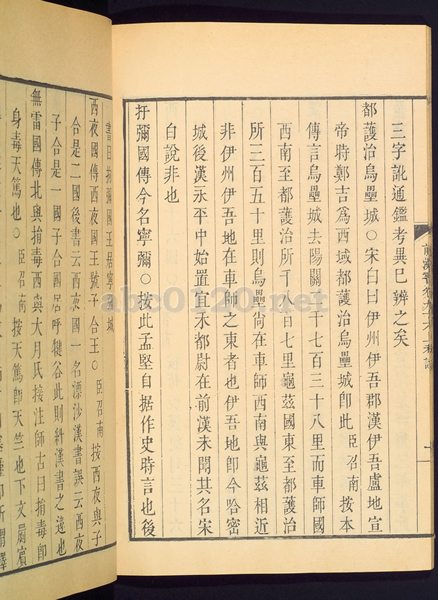 三字訛通鑑考異已辨之矣
都護治烏壘城○宋白曰伊州伊吾郡漢伊吾盧地宣
帝時鄭吉爲西域都護治烏壘城卽此臣召南按本
傳言烏壘城去陽關二千七百三十八里而車師國
西南至都護治所千八百七里龜茲國東至都護治
所三百五十里則烏壘尙在車師西南與龜茲相近
非伊州伊吾地在車師之東者也伊吾地卽今哈密
城後漢永平中始置宜禾都尉在前漢未聞其名宋
白說非也
扜彌國傳今名寧彌○按此孟堅自据作史時言也後
書曰拘彌國王居寧彌城
西夜國傳西夜國王號子合王○臣召南按西夜與子
合是二國後書云西夜國一名漂沙漢書誤云西夜
子合是一國子合國居呼鞬谷此則糾漢書之逸也
無雷國傳北與捐毒西與大月氏接注師古曰捐毒卽
身毒天篤也○臣召南按天篤卽天竺也下文罽賓
abc0120.net